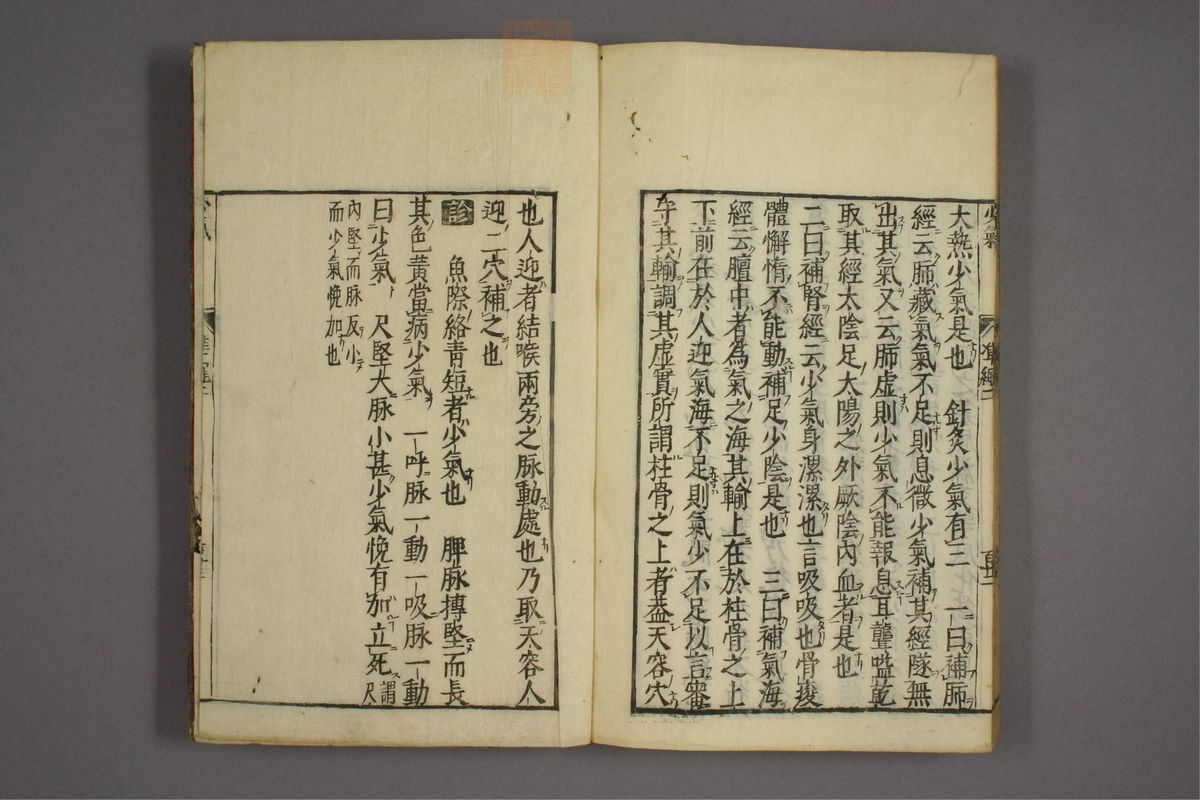 大熱少氣是也　針灸少氣有三　一曰補肺
經云肺藏氣氣不足則息微少氣補其經隧無
出其氣又云肺虛則少氣不能報息耳聾嗌乾
取其經太陰足太陽之外厥陰內血者是也
二曰補腎經云少氣身漯漯也言吸吸也骨痠
體懈惰不能動補足少陰是也　三曰補氣海
經云膻中者為氣之海其輸上在於柱骨之上
下前在於人迎氣海不足則氣少不足以言審
守其輸調其虛實所謂柱骨之上者蓋天容穴
也人迎者結喉兩旁之脉動處也乃取天容人
迎二穴補之也
診　魚際絡青短者少氣也　脾脉搏堅而長
其色黃當病少氣　一呼脉一動一吸脉一動
曰少氣　尺堅大脉小甚少氣悗有加立死謂尺
內堅而脉反小
而少氣悗加也